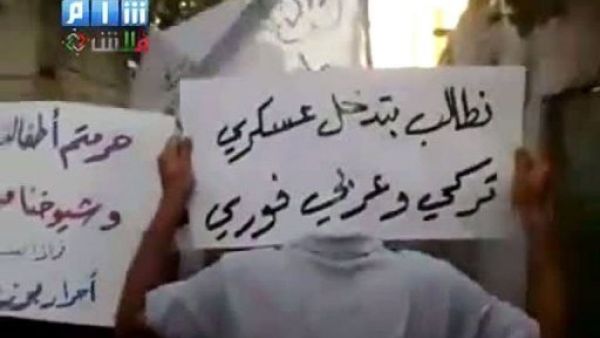 شام
فلاش
نطالب بتدخل عسكري
تركي وعربي فوري
حرمتم
وشيوخنا
أحرار